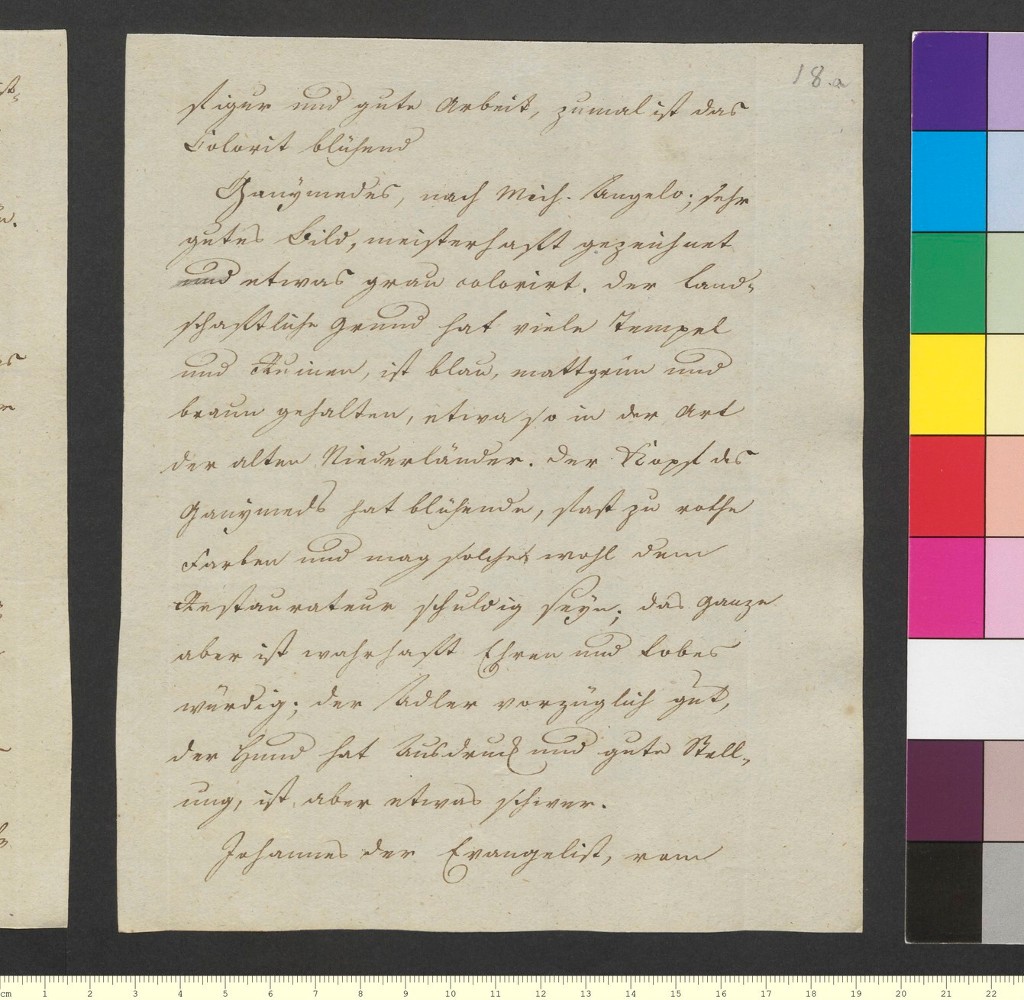 18.a
figur und gute Arbeit, zumal ist das
Colorit blühend
Ganÿmedes, nach Mich. Angelo; sehr
gutes Bild, meisterhaft gezeichnet
und etwas grau colorirt. Der Land-
schaftliche Grund hat viele Tempel
und Ruinen, ist blau, mattgrün und
braun gehalten, etwa so in der Art
der alten Niederländer. Der Kopf des
Ganÿmeds hat blühende, fast zu rothe
Farben und mag solches wohl dem
Restaurateur schuldig seÿn; das Ganze
aber ist wahrhaft Ehren und Lobes
würdig; der Adler vorzüglich gut,
der Hund hat Ausdruck und gute Stell-
ung, ist aber etwas schwer.
Johannes der Evangelist, vom